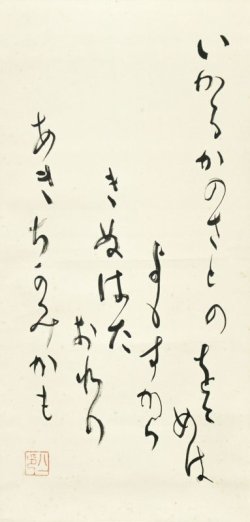 いかるかのさとのをと
めは
よもすから
きぬはた
おれり
あきちかみかも